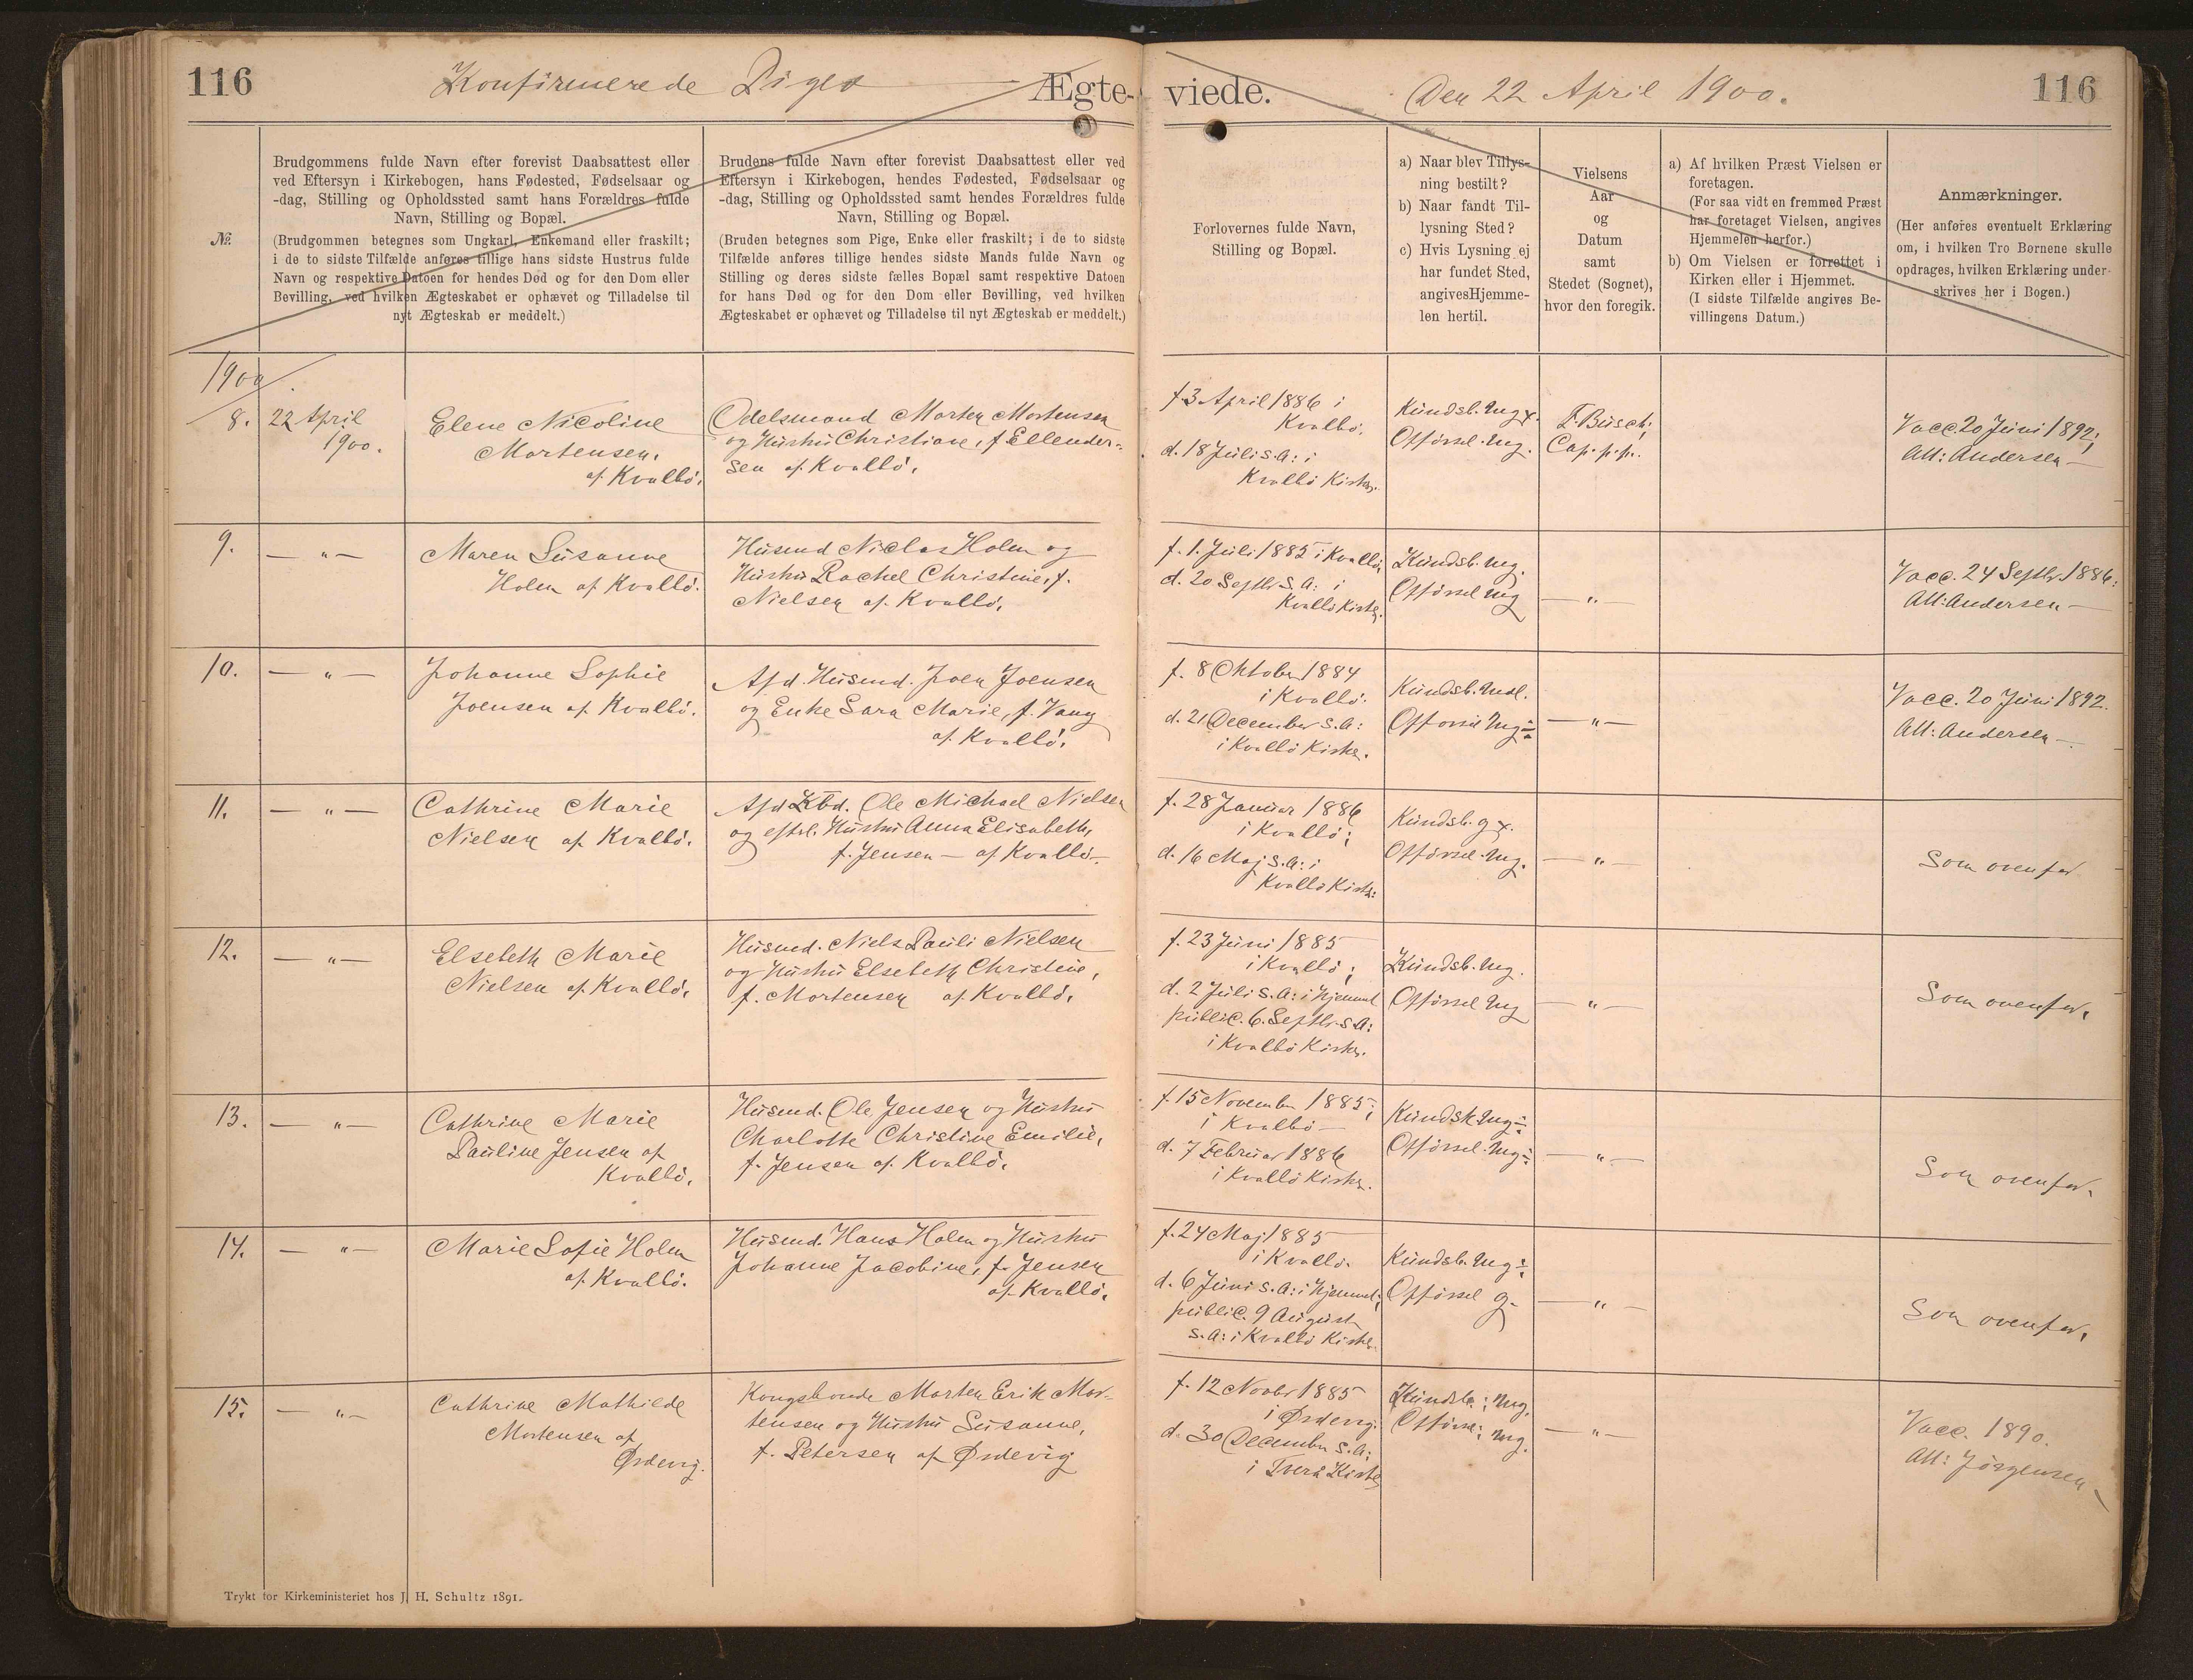 116
Konfirmerede Piger
Ægte-
viede.
Den 22 April 1900.
116
№.
Brudgommens fulde Navn efter forevist Daabsattest eller
ved Eftersyn i Kirkebogen, hans Fødested, Fødselsaar og
-dag, Stilling og Opholdssted samt hans Forældres fulde
Navn, Stilling og Bopæl.
(Brudgommen betegnes som Ungkarl, Enkemand eller fraskilt;
i de to sidste Tilfælde anføres tillige hans sidste Hustrus fulde
Navn og respektive Datoen for hendes Død og for den Dom eller
Bevilling, ved hvilken Ægteskabet er ophævet og Tilladelse til
nyt Ægteskab er meddelt.)
Brudens fulde Navn efter forevist Daabsattest eller ved
Eftersyn i Kirkebogen, hendes Fødested, Fødselsaar og
-dag, Stilling og Opholdssted samt hendes Forældres fulde
Navn, Stilling og Bopæl.
(Bruden betegnes som Pige, Enke eller fraskilt; i de to sidste
Tilfælde anføres tillige hendes sidste Mands fulde Navn og
Stilling og deres sidste fælles Bopæl samt respektive Datoen
for hans Død og for den Dom eller Bevilling, ved hvilken
Ægteskabet er ophævet og Tilladelse til nyt Ægteskab er meddelt.)
Forlovernes fulde Navn,
Stilling og Bopæl.
a) Naar blev Tillys-
ning bestilt?
b) Naar fandt Til-
lysning Sted?
c) Hvis Lysning ej
har fundet Sted,
angives Hjemme-
len hertil.
Vielsens
Aar
og
Datum
samt
Stedet (Sognet),
hvor den foregik.
a) Af hvilken Præst Vielsen er
foretagen.
(For saa vidt en fremmed Præst
har foretaget Vielsen, angives
Hjemmelen herfor.)
b) Om Vielsen er forrettet i
Kirken eller i Hjemmet.
(I sidste Tilfælde angives Be-
villingens Datum.)
Anmærkninger.
(Her anføres eventuelt Erklæring
om, i hvilken Tro Børnene skulle
opdrages, hvilken Erklæring under-
skrives her i Bogen.)
1900
8.
22 April
1900.
Elene Nicoline
Mortensen,
af Kvalbö.
Odelsmand Morten Mortensen
og Hustru Christiane, f. Ellender-
sen af Kvalbö.
f. 3 April 1886 i
Kvalbö.
d. 18 Juli s. A: i
Kvalbö Kirke.
Kundsk. mg x.
Opförsel mg.
F. Busch,
Cap. p. p.
Vacc. 20 Juni 1892;
Att: Andersen —
9.
— " —
Maren Susanne
Holm af Kvalbö.
Husmd Niclas Holm og
Hustru Rachel Christine, f.
Nielsen af Kvalbö.
f. 1. Juli 1885 i Kvalbö,
d. 20 Septbr. S. A: i
Kvalbö Kirke.
Kundsk. mg.
Opförsel mg
— " —
Vacc. 24 Septbr 1886:
Att: Andersen —
10.
— " —
Johanne Sophie
Joensen af Kvalbö.
Afd. Husmd. Joen Joensen
og Enke Sara Marie, f. Vang
af Kvalbö.
f. 8 Oktober 1884
i Kvalbö.
d. 21 December s. A:
i Kvalbö Kirke.
Kundsk. mdl.
Opförsel mg ÷
— " —
Vacc. 20 Juni 1892.
Att: Andersen —
11.
— " —
Cathrine Marie
Nielsen af Kvalbö.
Afd Kbd. Ole Michael Nielsen
og eftrl. Hustru Anna Elisabeth,
f. Jensen — af Kvalbö —
f. 28 Januar 1886
i Kvalbö;
d. 16 Maj s. A: i
Kvalbö Kirke:
Kundsk. g x.
Opförsel mg.
— " —
Som ovenfor
12.
— " —
Elsebeth Marie
Nielsen af Kvalbö.
Husmd. Niels Pauli Nielsen
og Hustru Elsebeth Christine,
f. Mortensen af Kvalbö.
f. 23 Juni 1885
i Kvalbö;
d. 2 Juli s. A: i Hjemmet
public. 6. Septbr. s A:
i Kvalbö Kirke.
Kundsk. mg.
Opförsel mg
— " —
Som ovenfor.
13.
— " —
Cathrine Marie
Pauline Jensen af
Kvalbö.
Husmd. Ole Jensen og Hustru
Charlotte Christine Emilie,
f. Jensen af Kvalbö.
f. 15 November 1885;
i Kvalbö —
d. 7 Februar 1886
i Kvalbö Kirke.
Kundsk mg ÷
Opförsel mg ÷
— " —
Som ovenfor.
14.
— " —
Marie Sofie Holm
af Kvalbö.
Husmd. Hans Holm og Hustru
Johanne Jacobine, f. Jensen
af Kvalbö.
f. 24 Maj 1885
i Kvalbö.
d. 6 Juni s. A: i Hjemmet;
public. 9 August
s. A: i Kvalbö Kirke.
Kundsk. mg ÷
Opförsel g.
— " —
Som ovenfor.
15.
— " —
Cathrine Mathilde
Mortensen af
Ördevig.
Kongsbonde Morten Erik Mor-
tensen og Hustru Susanne,
f. Petersen af Ördevig
f. 12 Novbr 1885
i Ördevig.
d. 30 December s. A:
i Tverå Kirke
Kundsk: mg.
Opförsel: mg.
— " —
Vacc. 1890.
Att: Jörgensen —
Trykt for Kirkeministeriet hos J. H. Schultz 1891.